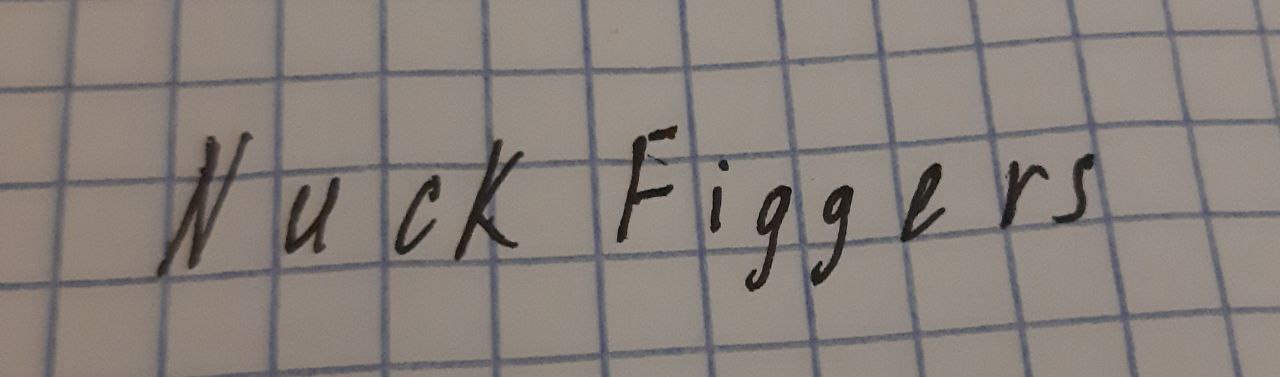 Nuck Figgers